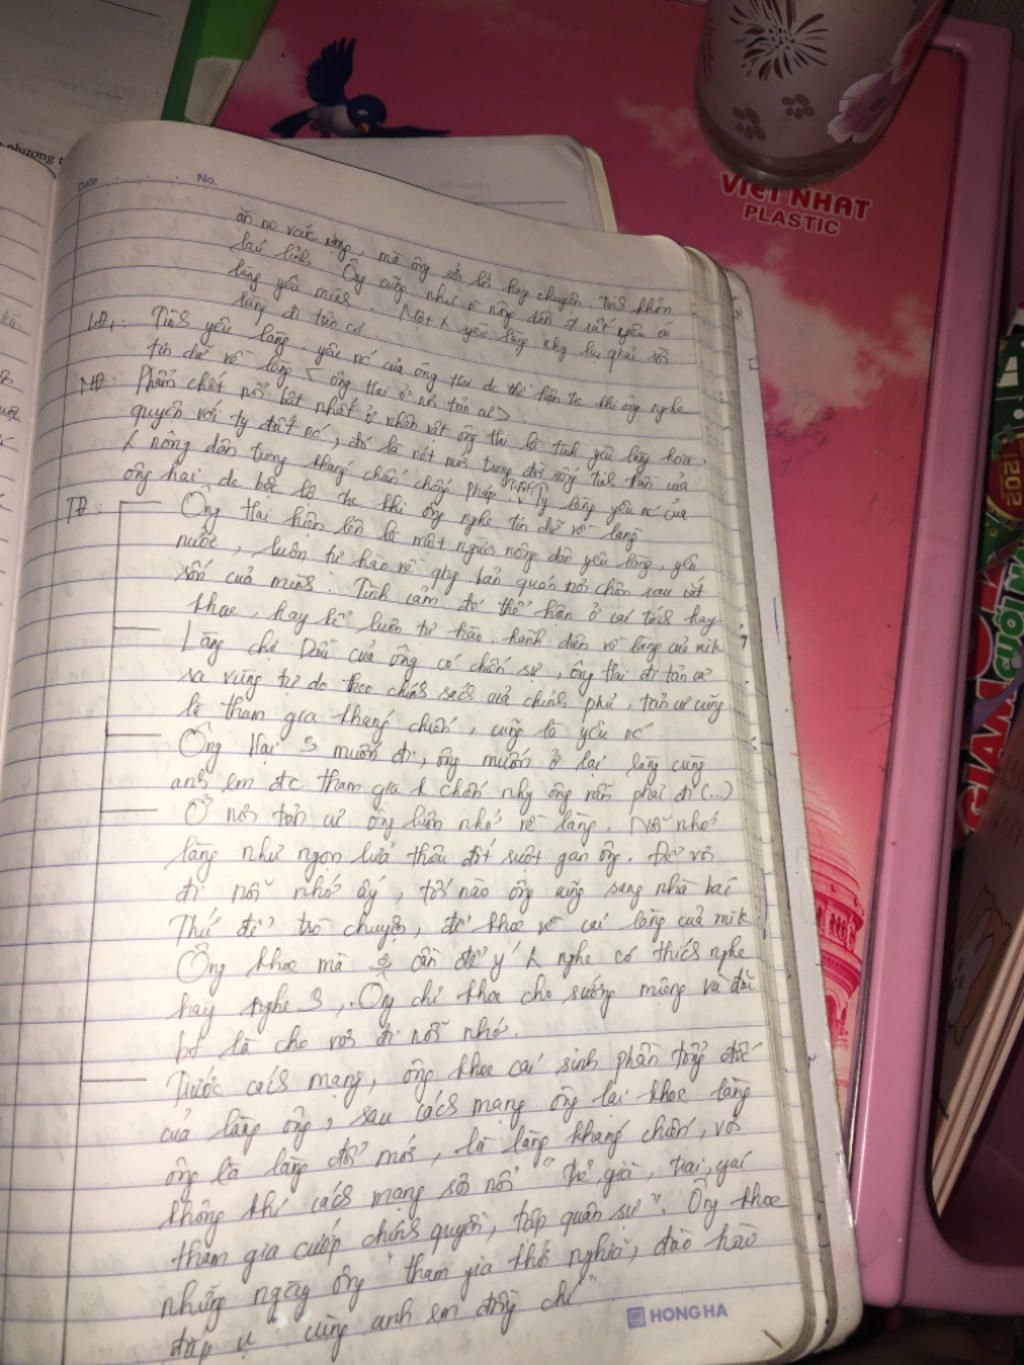 Date No.
ăn no vác nặng, mà ông sởi lởi hay chuyện, tính khôn
láu lỉnh. Ông cũng như n nông dân # rất yêu cái
làng yêu mình. Một yêu làng nhg lại phải rời
làng đi tản cư
LĐ1: Tình yêu làng, yêu nc của ông Hai đc thể hiện tc khi ông nghe
tin dữ về làng < ông Hai ở nơi tản cư >
MĐ: Phẩm chất nổi bật nhất ở nhân vật ông Hai là tình yêu làng hòa
quyện với ty đất nc, đó là nét mới trong đời sống tinh thần của
nông dân trong kháng chiến chống Pháp. Ty làng yêu nc của
ông hai đc bộc lộ tc khi ông nghe tin dữ về làng
TĐ: Ông Hai hiện lên là một người nông dân yêu làng, yêu
nước, luôn tự hào về quê bản quán nơi chôn rau cắt
rốn của mình. Tình cảm đó thể hiện ở cái tính hay
khoe, hay kể luôn tự hào, hãnh diện về làng của mik
Làng chợ Dầu của ông có chiến sự, ông Hai đi tản cư
ra vùng tự do theo chính sách của chính phủ, tản cư cũng
là tham gia kháng chiến, cũng là yêu nc
Ông Hai muốn đi, ông muốn ở lại làng cùng
anh em đc tham gia k chiến nhg ông vẫn phải đi (...)
Ở nơi tản cư ông luôn nhớ về làng. Nỗi nhớ
làng như ngọn lửa thiêu đốt ruột gan ông. Để vơi
đi nỗi nhớ ấy, tối nào ông cũng sang nhà bác
Thứ để trò chuyện, để khoe về cái làng của mik
Ông khoe mà cần để ý nghe có thích nghe
hay nghe, Ông chỉ khoe cho sướng miệng và đôi
là cho vơi đi nỗi nhớ.
Trước cách mạng, ông khoe cái sinh phần tổng đốc
của làng ông, sau cách mạng ông lại khoe làng
ông là làng đổi mới, là làng kháng chiến, với
không khí cách mạng sôi nổi "trẻ, già, trai, gái
tham gia cướp chính quyền, tập quân sự". Ông khoe
những ngày ông "tham gia khởi nghĩa, đào hào
đắp ụ cùng anh em đồng chí"
HONG HA
VIET NHAT
PLASTIC
phương t